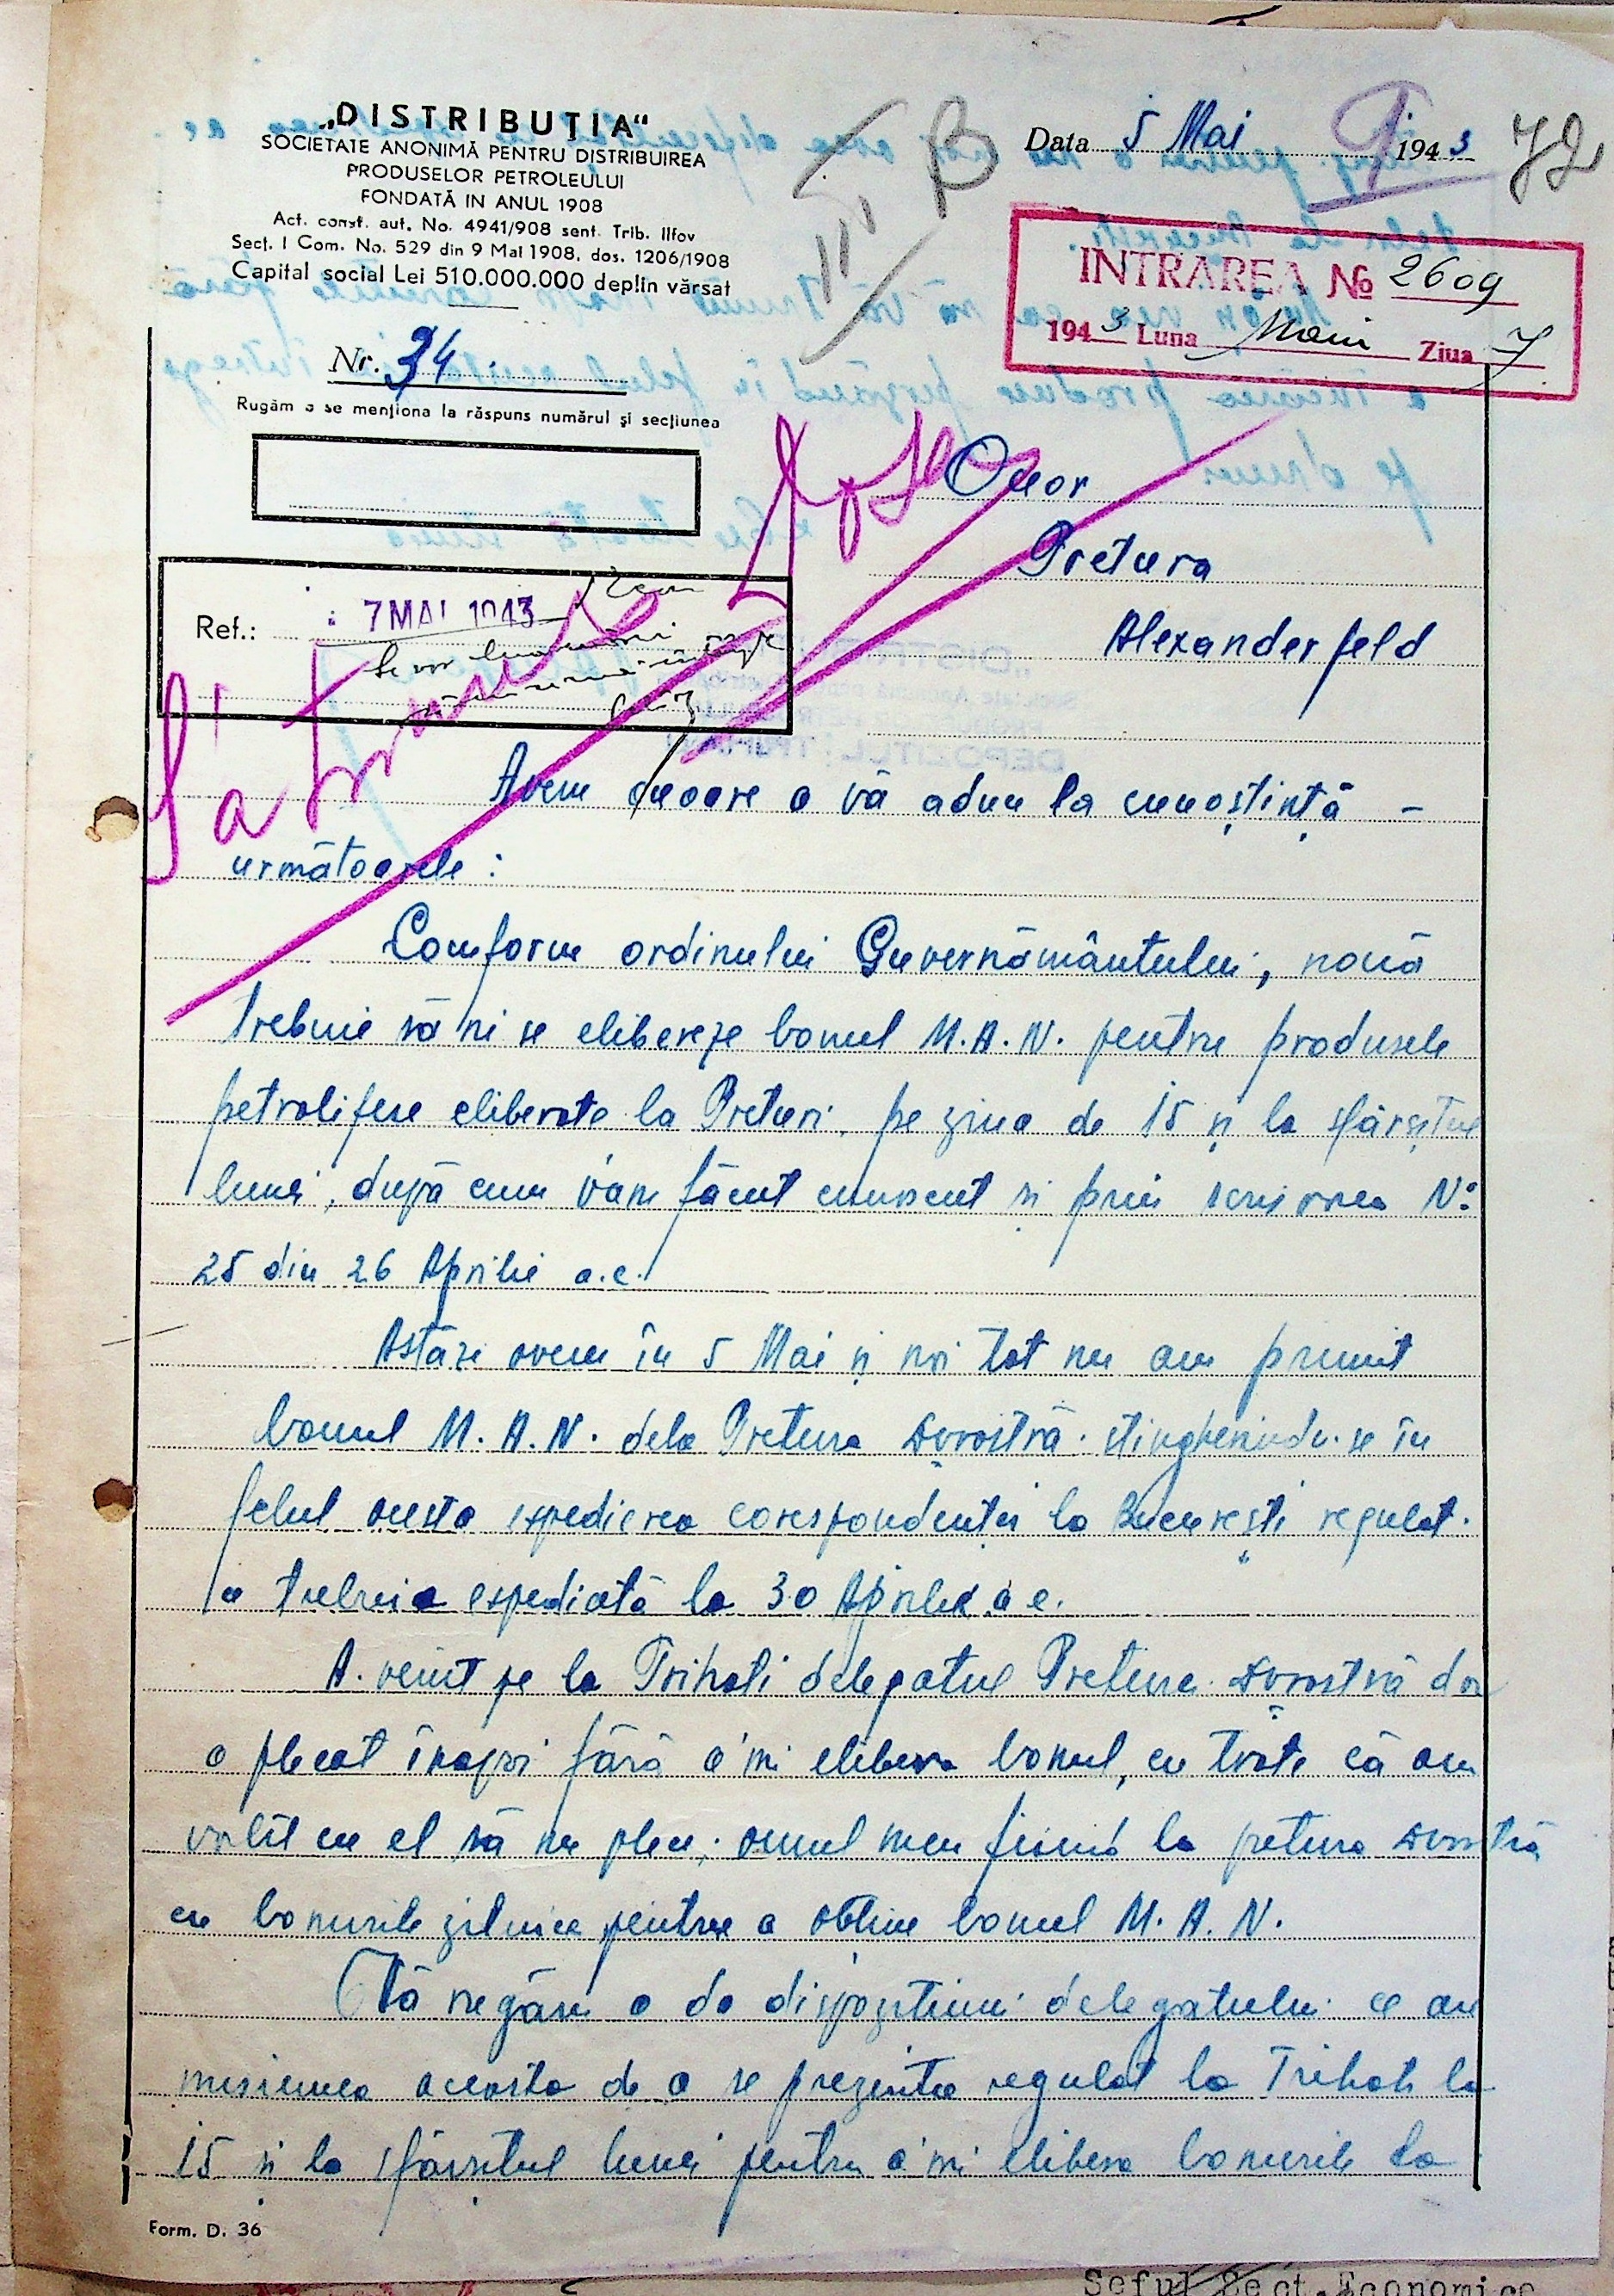 „DISTRIBUŢIA“
SOCIETATE ANONIMĂ PENTRU DISTRIBUIREA
PRODUSELOR PETROLEULUI
FONDATĂ IN ANUL 1908
Act. const. aut. No. 4941/908 sent. Trib. Ilfov
Secţ. I Com. No. 529 din 9 Mai 1908, dos. 1206/1908
Capital social Lei 510.000.000 deplin vărsat
B
Data 5 Mai 1943
72
INTRAREA № 2609
1943 Luna Maiu Ziua 7
Nr. 34
Rugăm a se menţiona la răspuns numărul şi secţiunea
Onor
Pretura
Alexanderfeld
Ref.: 7 MAI 1943
Avem onoare a vă aduce la cunoştinţă –
următoarele :
Conform ordinului Guvernământului, nouă
trebuie să ni se elibereze bonul M.A.N. pentru produsele
petrolifere eliberate la Preturi, pe ziua de 15 şi la sfârşitul
lunei, după cum v'am făcut cunoscut şi prin scrisoarea No
25 din 26 Aprilie a.c.
Astăzi avem în 5 Mai şi noi tot nu am primit
bonul M.A.N. dela Pretura Dvostră stinghenindu-se în
felul acesta expedierea corespondenţei la Bucureşti regulat.
a trebuia espediată la 30 Aprilie a c.
A venit pe la Trihati delegatul Preturei Dvostră dar
a plecat înapoi fără a'mi elibera bonul, cu toate că am
vorbit cu el să nu plece, omul meu fiind la pretura Dvostră
cu bonurile zilnice pentru a obţine bonul M.A.N.
Vă rugăm a da dispoziţiuni delegatului ce are
misiunea aceasta de a se prezinta regulat la Trihati la
15 şi la sfârşitul lunei pentru a'mi elibera bonurile la
Form. D. 36
Şeful Sect. Economice